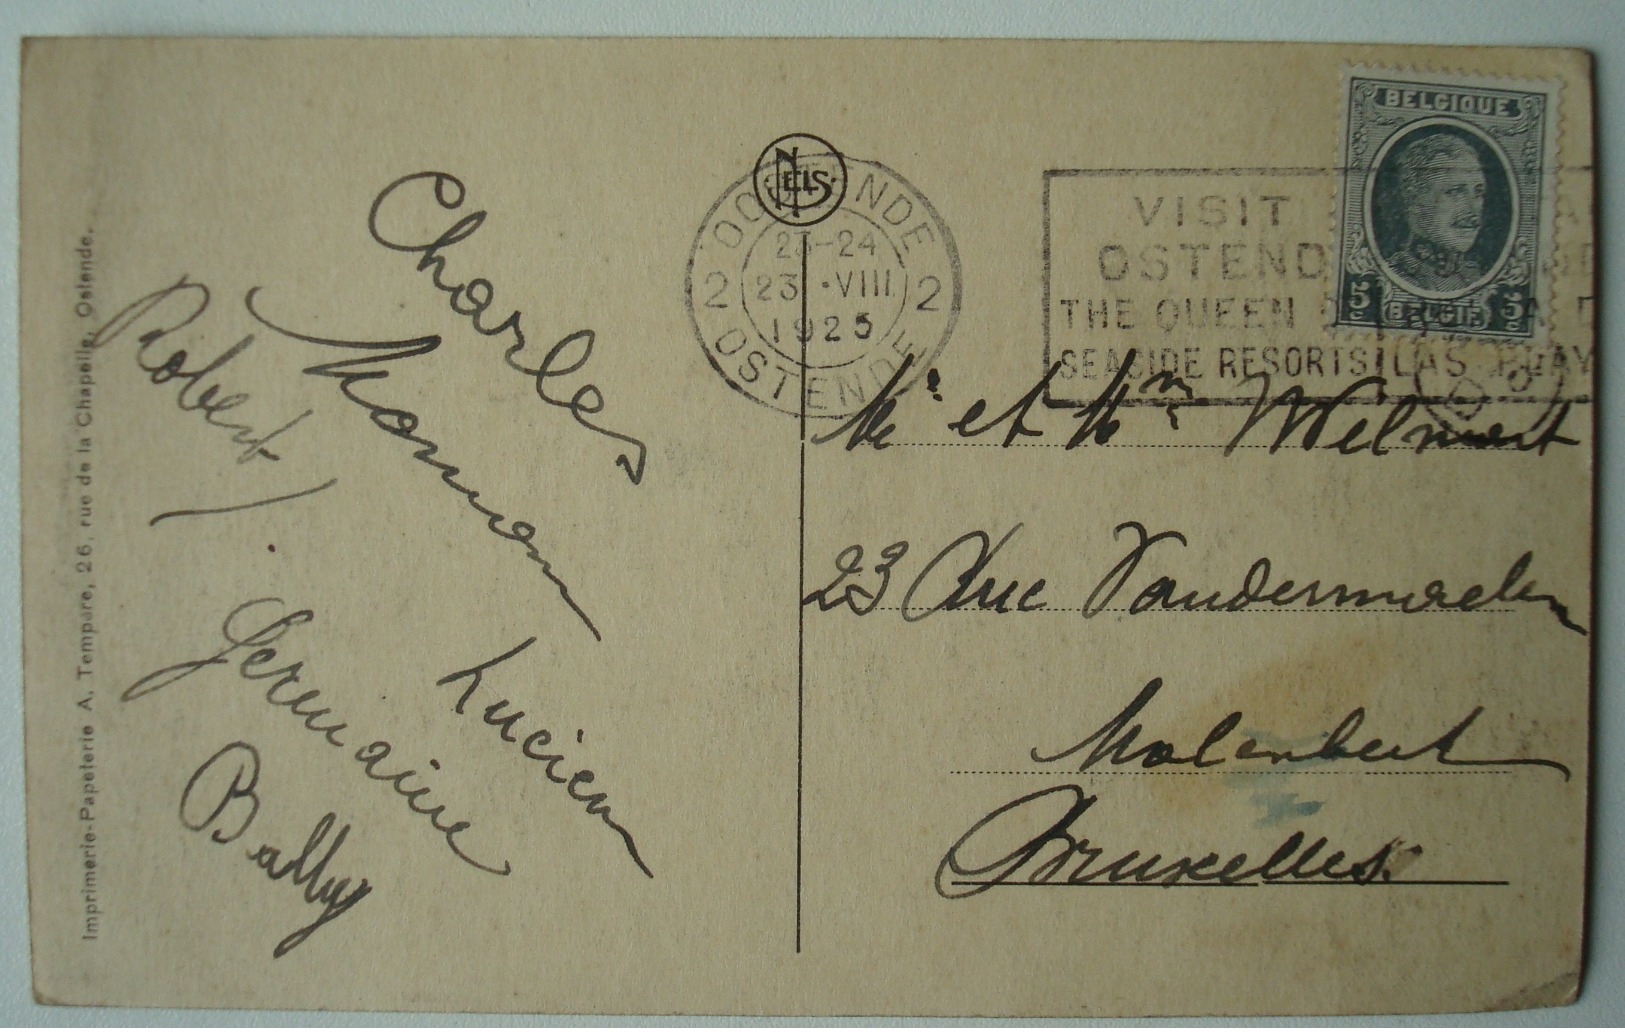 Imprimerie-Papeterie A. Tempare, 26, rue de la Chapelle, Ostende.
Charles
Maman
Robert
Germaine
Lucien
Bally
NELS
OOSTENDE
2 2
23-24
23 ·VIII
1925
OSTENDE
VISIT
OSTEND
THE QUEEN
SEASIDE RESORTS LAS PLAY
BELGIQUE
5c 5c
BELGIË
Mr et Mme Wilmart
23 Rue Vandermaelen
Molenbeek
Bruxelles.